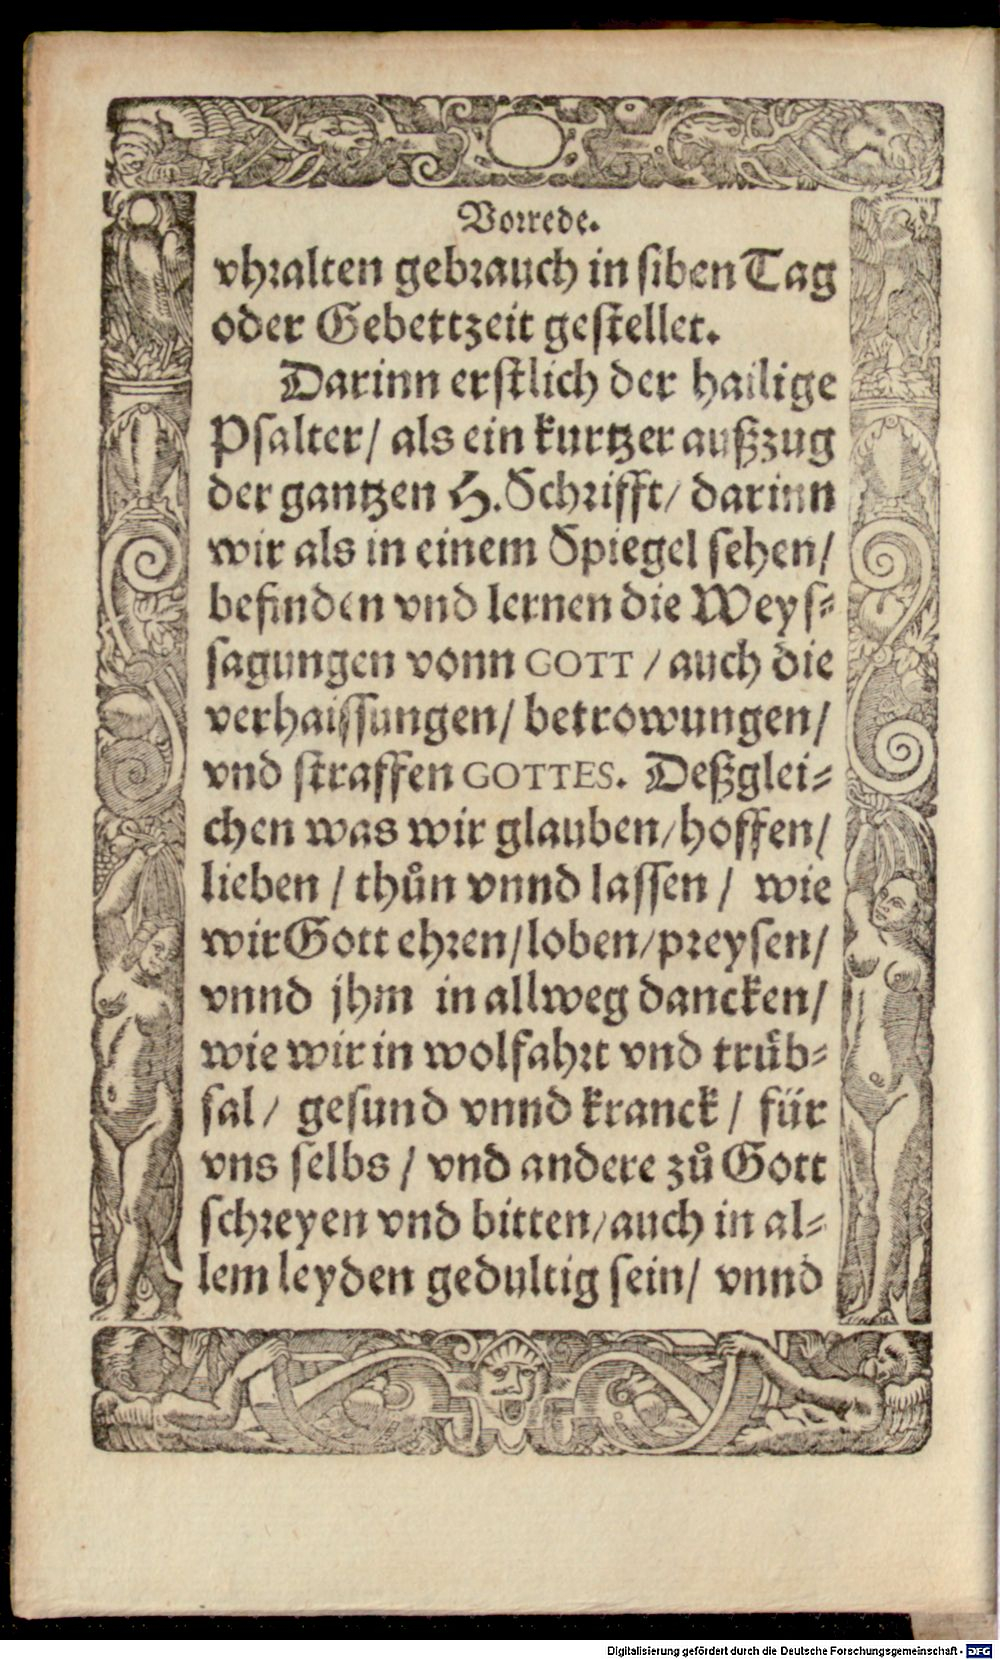 Vorrede.
vhralten gebrauch in siben Tag
oder Gebettzeit gestellet.
Darinn erstlich der hailige
Psalter / als ein kurtzer außzug
der gantzen H. Schrifft / darinn
wir als in einem Spiegel sehen /
befinden vnd lernen die Weys⸗
sagungen vonn GOTT / auch die
verhaissungen / betrowungen /
vnd straffen GOTTES. Deßglei⸗
chen was wir glauben / hoffen /
lieben / thůn vnnd lassen / wie
wir Gott ehren / loben / preysen /
vnnd jhm in allweg dancken /
wie wir in wolfahrt vnd truͤb⸗
sal / gesund vnnd kranck / für
vns selbs / vnd andere zů Gott
schreyen vnd bitten / auch in al⸗
lem leyden gedultig sein / vnnd
Digitalisierung gefördert durch die Deutsche Forschungsgemeinschaft - DFG